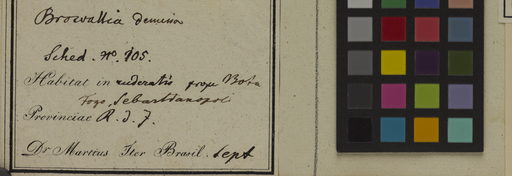 Browallia demissa
Sched. No. 105.
Habitat in ruderatis prope Bota
Fogo, Sebastianopoli
Provinciae R. d. J.
Dr Martius Iter Brasil. Sept